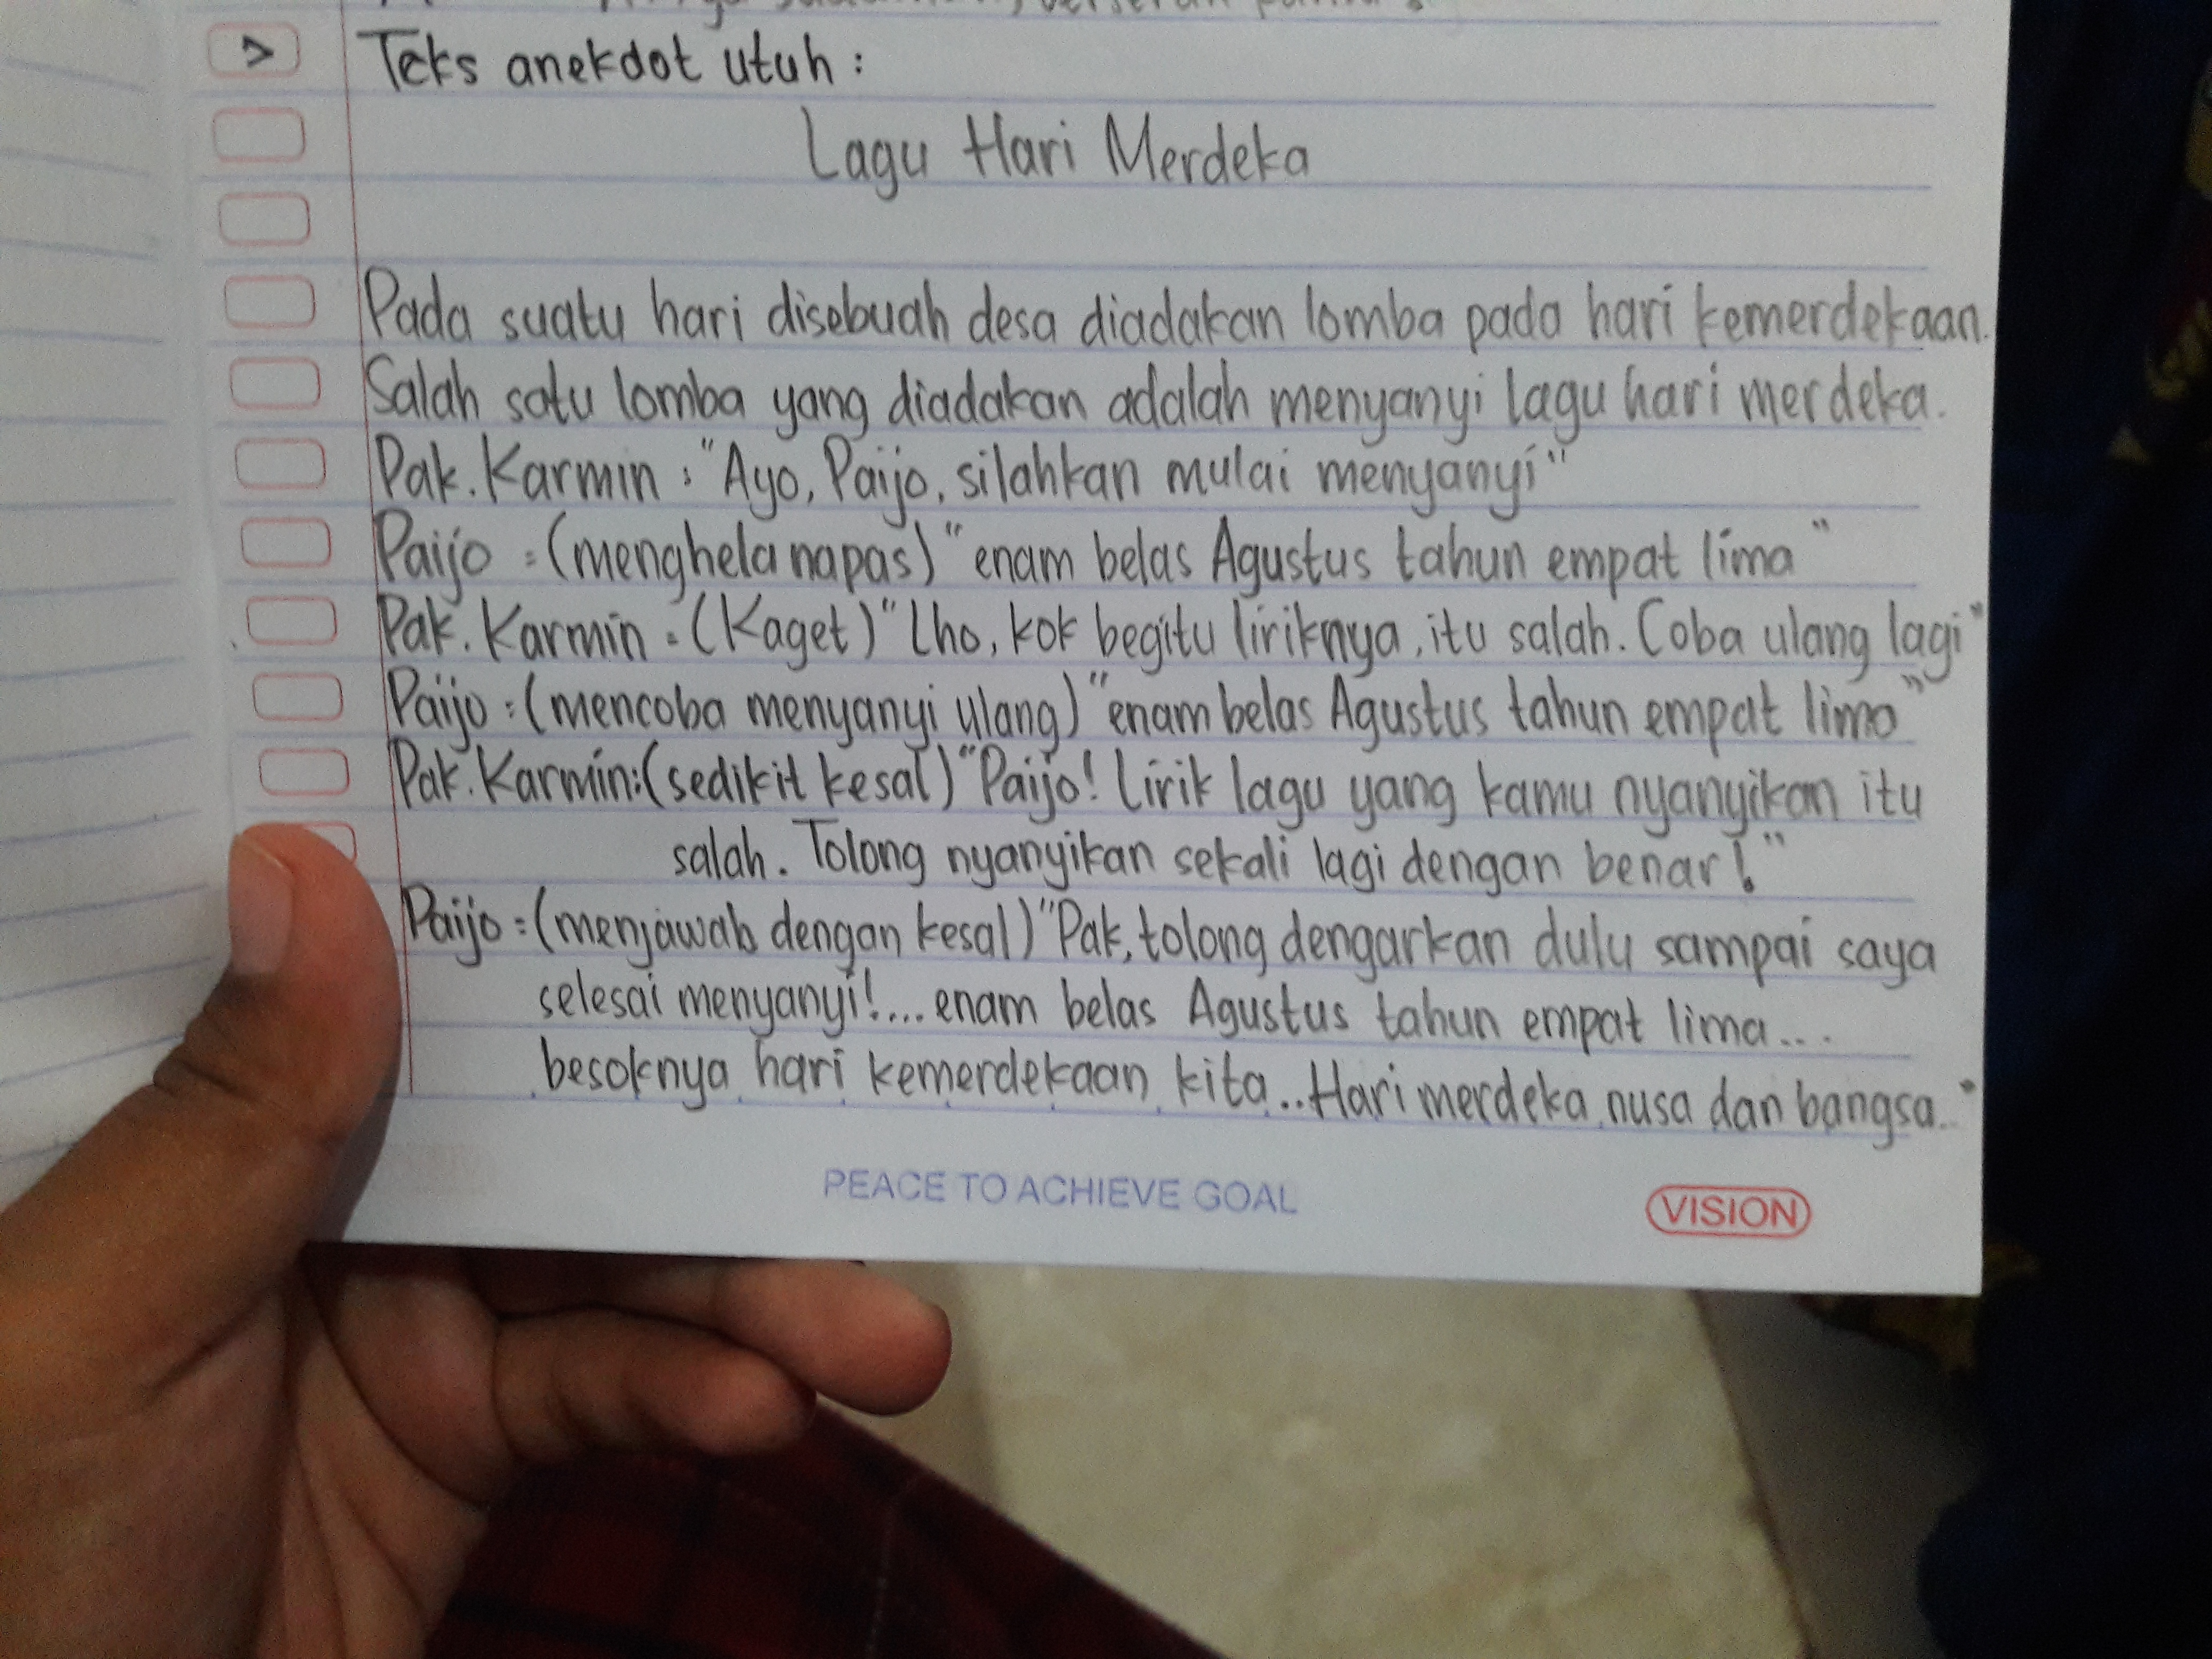 >
Teks anekdot utuh :
Lagu Hari Merdeka
Pada suatu hari disebuah desa diadakan lomba pada hari kemerdekaan.
Salah satu lomba yang diadakan adalah menyanyi lagu hari merdeka.
Pak. Karmin : "Ayo, Paijo, silahkan mulai menyanyi"
Paijo : (menghela napas) "enam belas Agustus tahun empat lima"
Pak. Karmin : (Kaget) "Lho, kok begitu liriknya, itu salah. Coba ulang lagi"
Paijo : (mencoba menyanyi ulang) "enam belas Agustus tahun empat lima"
Pak. Karmin : (sedikit kesal) "Paijo! Lirik lagu yang kamu nyanyikan itu
salah. Tolong nyanyikan sekali lagi dengan benar!"
Paijo : (menjawab dengan kesal) "Pak, tolong dengarkan dulu sampai saya
selesai menyanyi!... enam belas Agustus tahun empat lima...
besoknya hari kemerdekaan kita.. Hari merdeka nusa dan bangsa.."
PEACE TO ACHIEVE GOAL
VISION